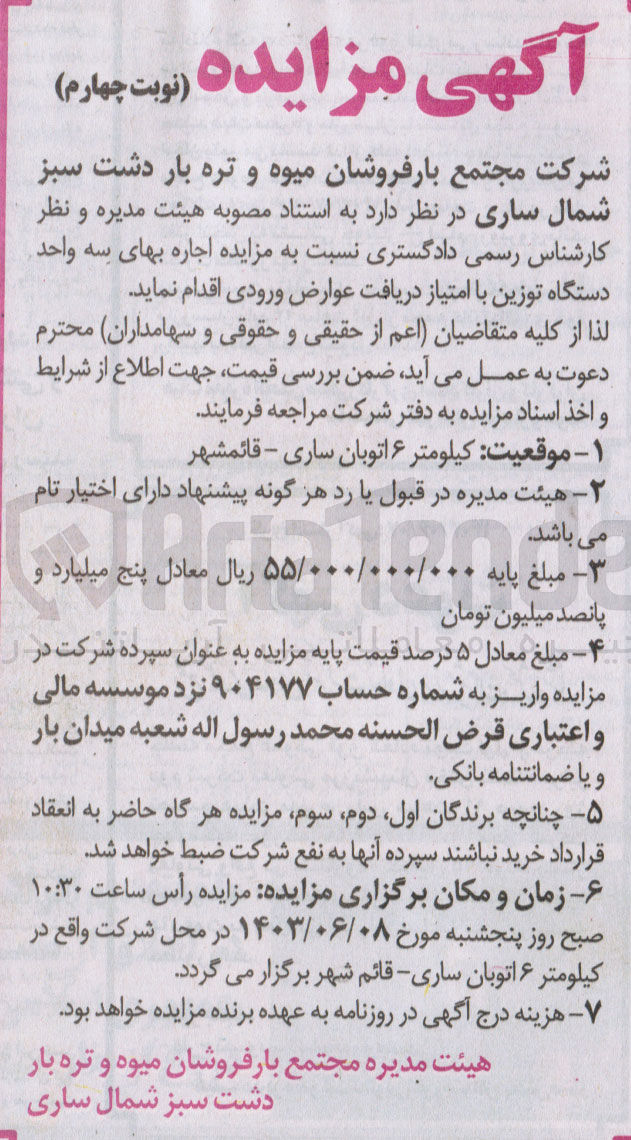 آگهی مزایده (نوبت چهارم)
شرکت مجتمع بارفروشان میوه و تره بار دشت سبز
شمال ساری در نظر دارد به استناد مصوبه هیئت مدیره و نظر
کارشناس رسمی دادگستری نسبت به مزایده اجاره بهای سه واحد
دستگاه توزین با امتیاز دریافت عوارض ورودی اقدام نماید.
لذا از کلیه متقاضیان (اعم از حقیقی و حقوقی و سهامداران) محترم
دعوت به عمل می آید، ضمن بررسی قیمت، جهت اطلاع از شرایط
و اخذ اسناد مزایده به دفتر شرکت مراجعه فرمایند.
۱- موقعیت: کیلومتر ۶ اتوبان ساری - قائمشهر
۲- هیئت مدیره در قبول یا رد هر گونه پیشنهاد دارای اختیار تام
می باشد.
۳- مبلغ پایه ۵۵/۰۰۰/۰۰۰/۰۰۰ ریال معادل پنج میلیارد و
پانصد میلیون تومان
۴- مبلغ معادل ۵ درصد قیمت پایه مزایده به عنوان سپرده شرکت در
مزایده واریز به شماره حساب ۹۰۴۱۷۷ نزد موسسه مالی
و اعتباری قرض الحسنه محمد رسول اله شعبه میدان بار
و یا ضمانتنامه بانکی.
۵- چنانچه برندگان اول، دوم، سوم، مزایده هر گاه حاضر به انعقاد
قرارداد خرید نباشند سپرده آنها به نفع شرکت ضبط خواهد شد.
۶- زمان و مکان برگزاری مزایده: مزایده رأس ساعت ۱۰:۳۰
صبح روز پنجشنبه مورخ ۱۴۰۳/۰۶/۰۸ در محل شرکت واقع در
کیلومتر ۶ اتوبان ساری- قائم شهر برگزار می گردد.
۷- هزینه درج آگهی در روزنامه به عهده برنده مزایده خواهد بود.
هیئت مدیره مجتمع بارفروشان میوه و تره بار
دشت سبز شمال ساری
AriaTende